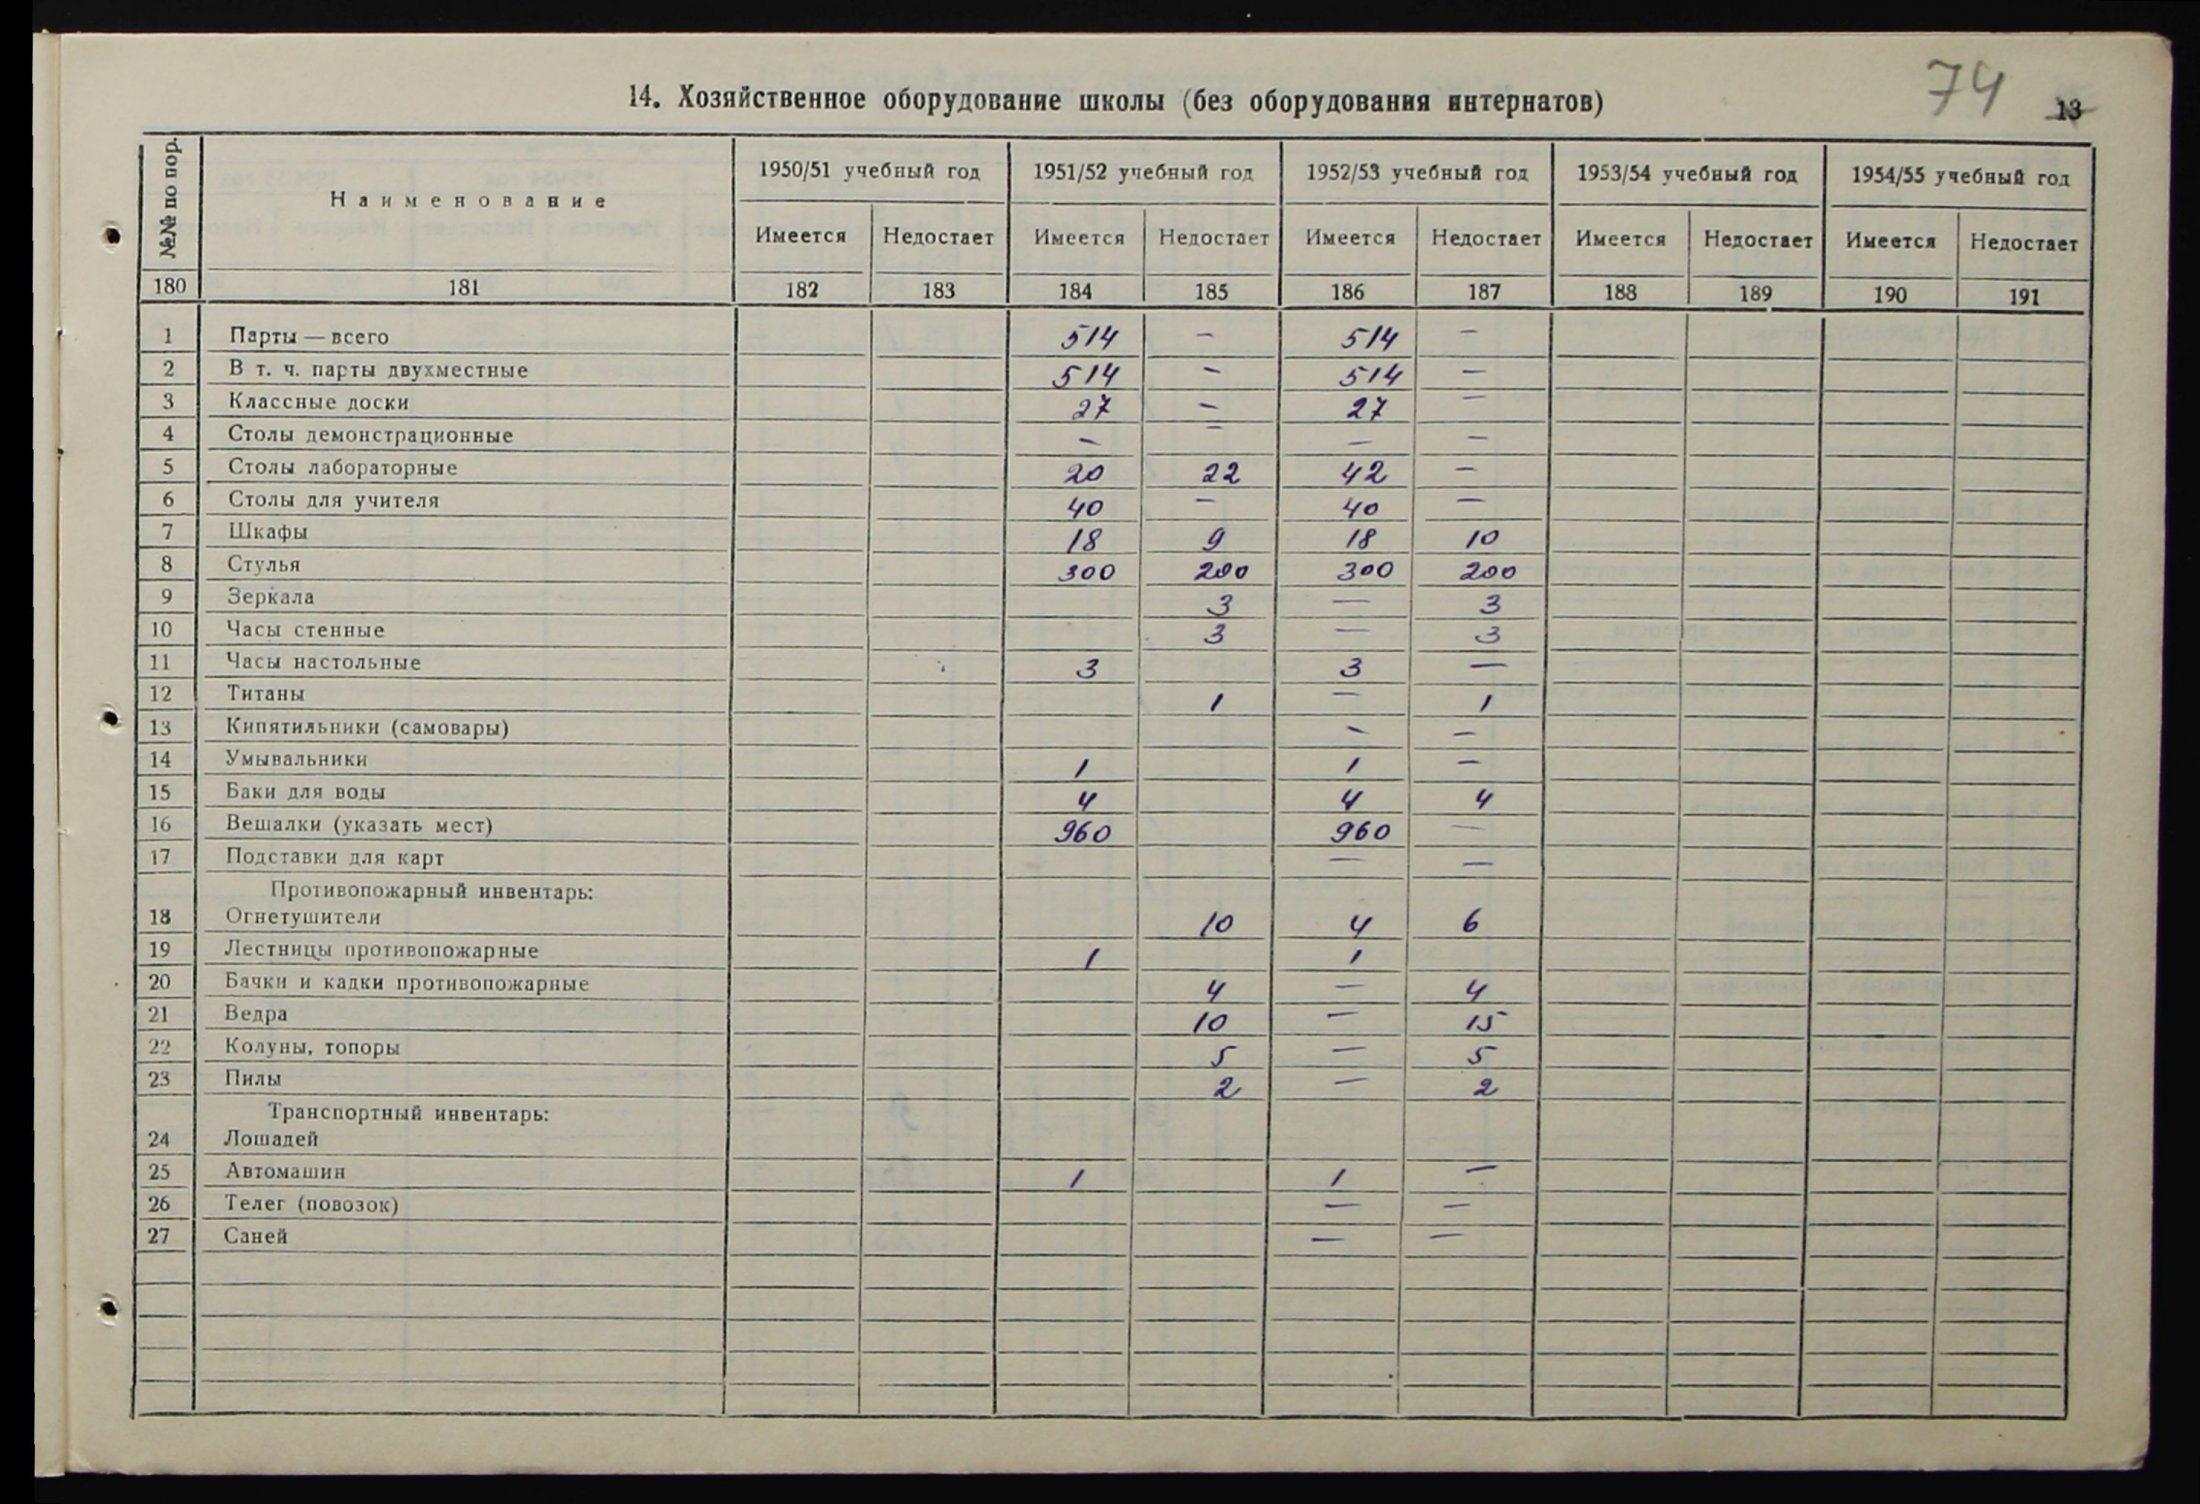 14. Хозяйственное оборудование школы (без оборудования интернатов)
74 13
№№ по пор. Наименование 1950/51 учебный год 1951/52 учебный год 1952/53 учебный год 1953/54 учебный год 1954/55 учебный год
Имеется Недостает Имеется Недостает Имеется Недостает Имеется Недостает Имеется Недостает
180 181 182 183 184 185 186 187 188 189 190 191
1 Парты — всего 514 — 514 —
2 В т. ч. парты двухместные 514 — 514 —
3 Классные доски 27 — 27 —
4 Столы демонстрационные — — — —
5 Столы лабораторные 20 22 42 —
6 Столы для учителя 40 — 40 —
7 Шкафы 18 9 18 10
8 Стулья 300 200 300 200
9 Зеркала 3 — 3
10 Часы стенные 3 — 3
11 Часы настольные 3 3 —
12 Титаны 1 — 1
13 Кипятильники (самовары) — —
14 Умывальники 1 1 —
15 Баки для воды 4 4 4
16 Вешалки (указать мест) 960 960 —
17 Подставки для карт — —
Противопожарный инвентарь:
18 Огнетушители 10 4 6
19 Лестницы противопожарные 1 1
20 Бачки и кадки противопожарные 4 — 4
21 Ведра 10 — 15
22 Колуны, топоры 5 — 5
23 Пилы 2 — 2
Транспортный инвентарь:
24 Лошадей
25 Автомашин 1 1 —
26 Телег (повозок) — —
27 Саней — —